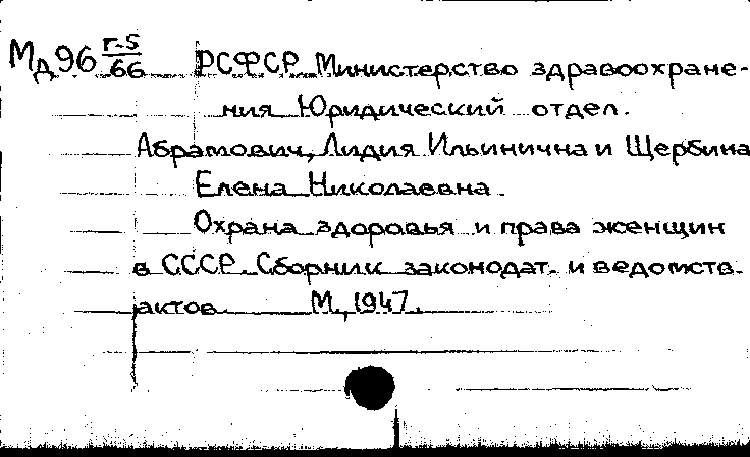 Мд96 Г-5/66 РСФСР Министерство здравоохране-
ния Юридический отдел.
Абрамович, Лидия Ильинична и Щербина
Елена Николаевна.
Охрана здоровья и права женщин
в СССР. Сборник законодат. и ведомств.
актов. М., 1947.